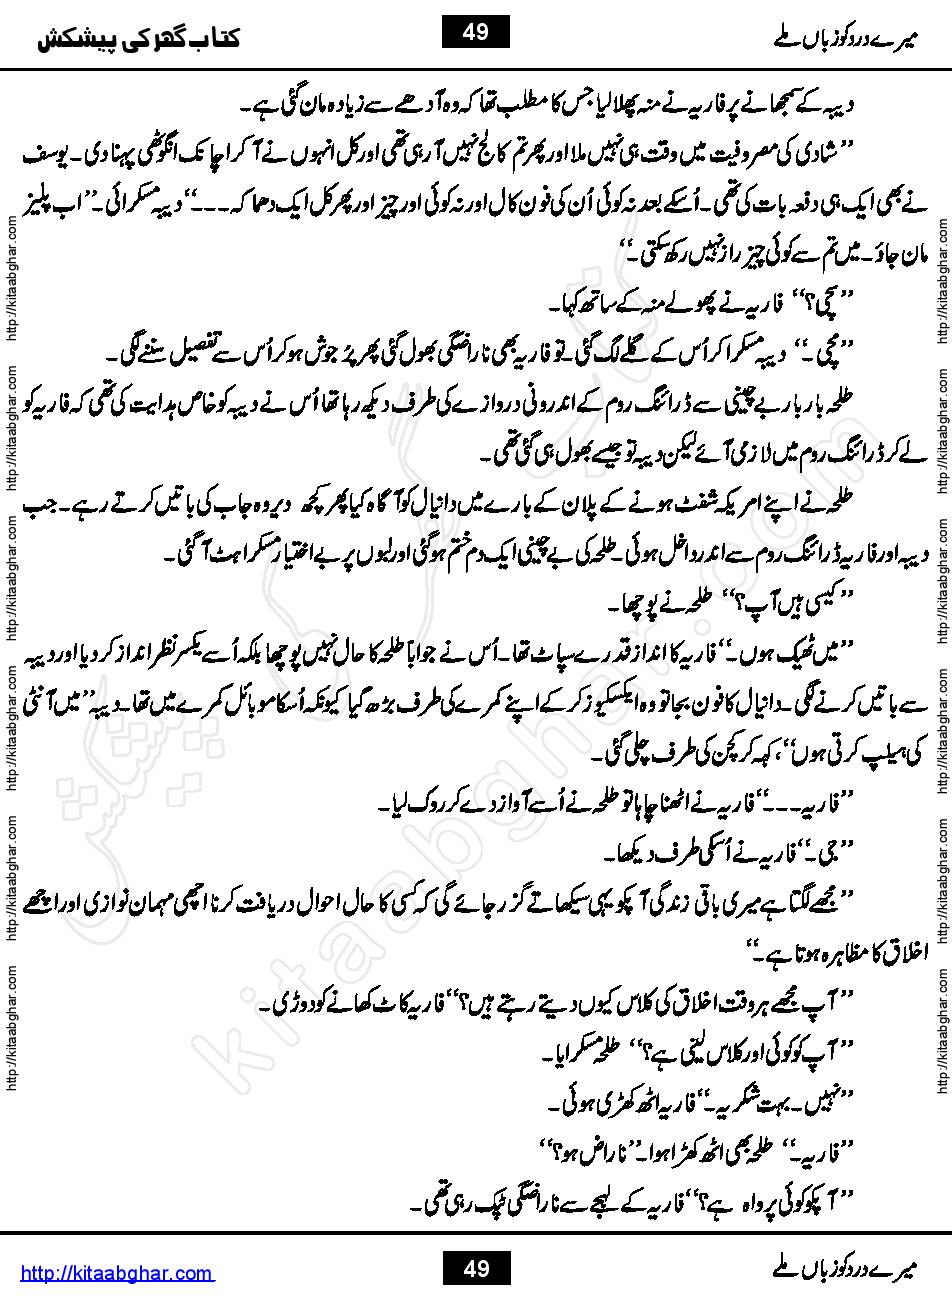 میرے درد کو زباں ملے
49
کتاب گھر کی پیشکش
دیبہ کے سمجھانے پر فاریہ نے منہ پھلا لیا جس کا مطلب تھا کہ وہ آدھے سے زیادہ مان گئی ہے۔
’’شادی کی مصروفیت میں وقت ہی نہیں ملا اور پھر تم کالج نہیں آ رہی تھی اور کل انہوں نے آ کر اچانک انگوٹھی پہنا دی۔ یوسف
نے بھی ایک ہی دفعہ بات کی تھی۔ اُسکے بعد نہ کوئی اُن کی فون کال اور نہ کوئی اور چیز اور پھر کل ایک دھماکہ۔۔۔‘‘ دیبہ مسکرائی۔ ’’اب پلیز
مان جاؤ۔ میں تم سے کوئی چیز راز نہیں رکھ سکتی۔‘‘
’’سچی؟‘‘ فاریہ نے پھولے منہ کے ساتھ کہا۔
’’مچی۔‘‘ دیبہ مسکرا کر اُس کے گلے لگ گئی۔ تو فاریہ بھی ناراضگی بھول گئی پھر پُر جوش ہو کر اُس سے تفصیل سننے لگی۔
طلحہ بار بار بے چینی سے ڈرائنگ روم کے اندرونی دروازے کی طرف دیکھ رہا تھا اُس نے دیبہ کو خاص ہدایت کی تھی کہ فاریہ کو
لے کر ڈرائنگ روم میں لازمی آئے لیکن دیبہ تو جیسے بھول ہی گئی تھی۔
طلحہ نے اپنے امریکہ شفٹ ہونے کے پلان کے بارے میں دانیال کو آگاہ کیا پھر کچھ دیر وہ جاب کی باتیں کرتے رہے۔ جب
دیبہ اور فاریہ ڈرائنگ روم سے اندر داخل ہوئی۔ طلحہ کی بے چینی ایک دم ختم ہو گئی اور لبوں پر بے اختیار مسکراہٹ آ گئی۔
’’کیسی ہیں آپ؟‘‘ طلحہ نے پوچھا۔
’’میں ٹھیک ہوں۔‘‘ فاریہ کا انداز قدرے سپاٹ تھا۔ اُس نے جواباً طلحہ کا حال نہیں پوچھا بلکہ اُسے یکسر نظر انداز کر دیا اور دیبہ
سے باتیں کرنے لگی۔ دانیال کا فون بجا تو وہ ایکسکیوز کر کے اپنے کمرے کی طرف بڑھ گیا کیونکہ اُسکا موبائل کمرے میں تھا۔ دیبہ ’’میں آنٹی
کی ہیلپ کرتی ہوں‘‘، کہہ کر کچن کی طرف چلی گئی۔
’’فاریہ۔۔۔‘‘ فاریہ نے اٹھنا چاہا تو طلحہ نے اُسے آواز دے کر روک لیا۔
’’جی۔‘‘ فاریہ نے اُسکی طرف دیکھا۔
’’مجھے لگتا ہے میری باقی زندگی آپکو یہی سیکھاتے گزر جائے گی کہ کسی کا حال احوال دریافت کرنا اچھی مہمان نوازی اور اچھے
اخلاق کا مظاہرہ ہوتا ہے۔‘‘
’’آپ مجھے ہر وقت اخلاق کی کلاس کیوں دیتے رہتے ہیں؟‘‘ فاریہ کاٹ کھانے کو دوڑی۔
’’آپ کو کوئی اور کلاس لینی ہے؟‘‘ طلحہ مسکرایا۔
’’نہیں۔ بہت شکریہ۔‘‘ فاریہ اٹھ کھڑی ہوئی۔
’’فاریہ۔‘‘ طلحہ بھی اٹھ کھڑا ہوا۔ ’’ناراض ہو؟‘‘
’’آپکو کوئی پرواہ ہے؟‘‘ فاریہ کے لہجے سے ناراضگی ٹپک رہی تھی۔
میرے درد کو زباں ملے
49
http://kitaabghar.com
http://kitaabghar.com
http://kitaabghar.com
http://kitaabghar.com
http://kitaabghar.com
http://kitaabghar.com
http://kitaabghar.com
http://kitaabghar.com
http://kitaabghar.com
http://kitaabghar.com
http://kitaabghar.com
http://kitaabghar.com
http://kitaabghar.com
کتاب گھر کی پیشکش
kitaabghar.com